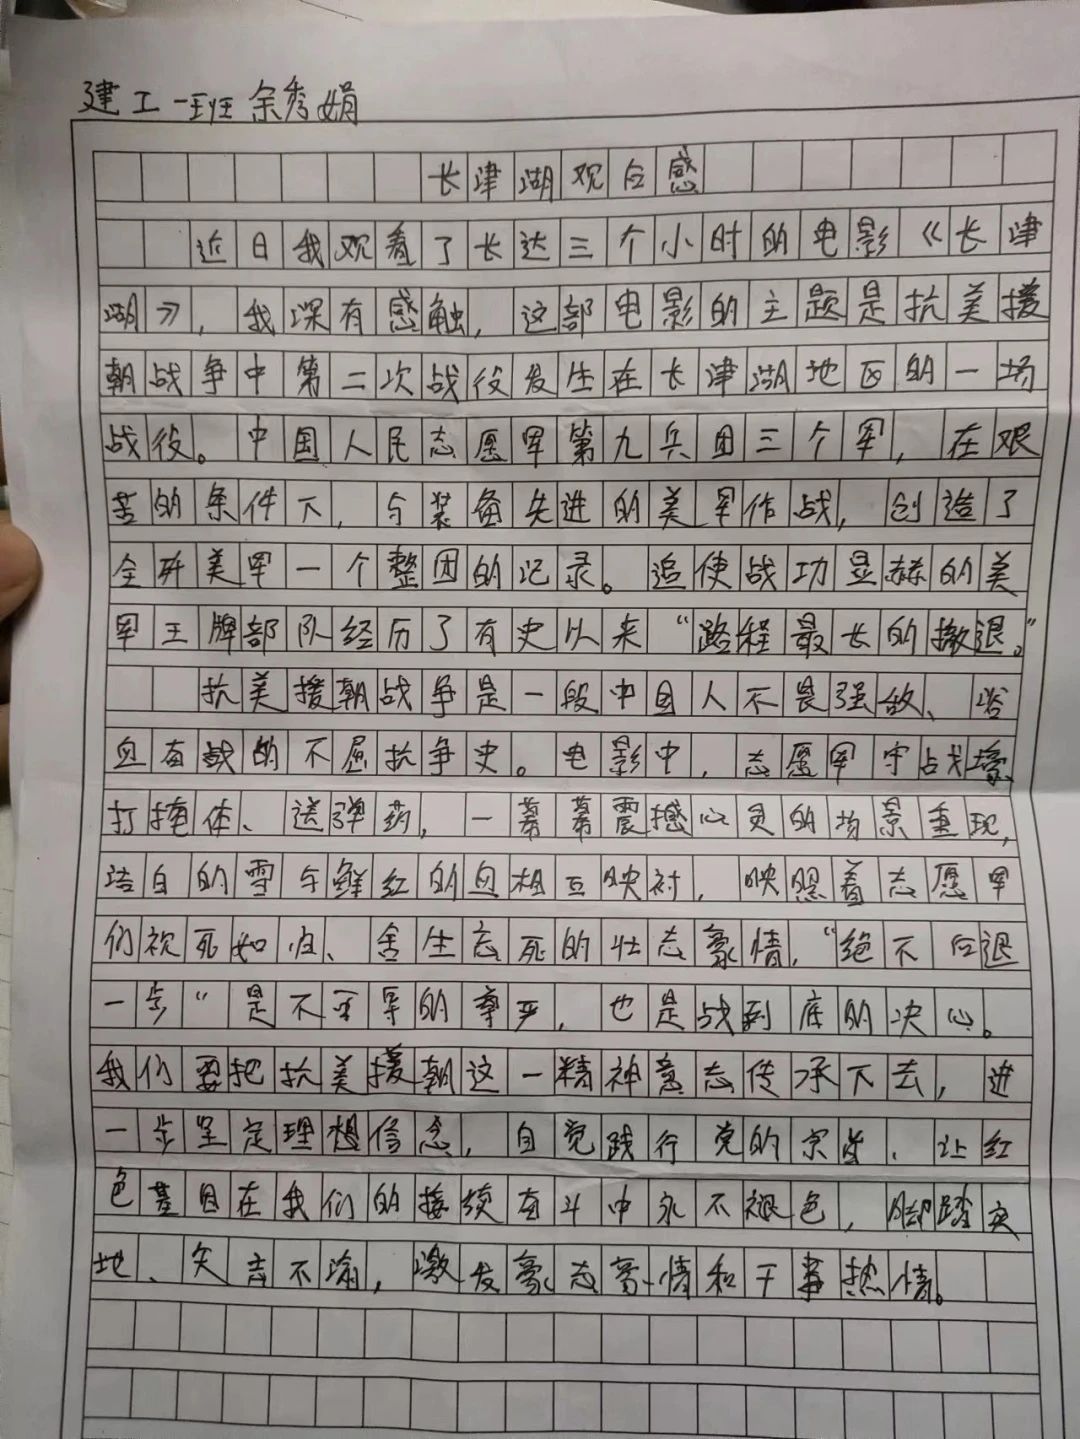 建工一班余秀娟
长津湖观后感
近日我观看了长达三个小时的电影《长津
湖》，我深有感触，这部电影的主题是抗美援
朝战争中第二次战役发生在长津湖地区的一场
战役。中国人民志愿军第九兵团三个军，在艰
苦的条件下，与装备先进的美军作战，创造了
全歼美军一个整团的记录。迫使战功显赫的美
军王牌部队经历了有史以来“路程最长的撤退。”
抗美援朝战争是一段中国人不畏强敌、浴
血奋战的不屈抗争史。电影中，志愿军守战壕、
打掩体、送弹药，一幕幕震撼心灵的场景重现，
洁白的雪与鲜红的血相互映衬，映照着志愿军
们视死如归、舍生忘死的壮志豪情，“绝不后退
一步”是不可辱的尊严，也是战到底的决心。
我们要把抗美援朝这一精神意志传承下去，进
一步坚定理想信念，自觉践行党的宗旨、让红
色基因在我们的接续奋斗中永不褪色，脚踏实
地、矢志不渝，激发豪志豪情和干事热情。